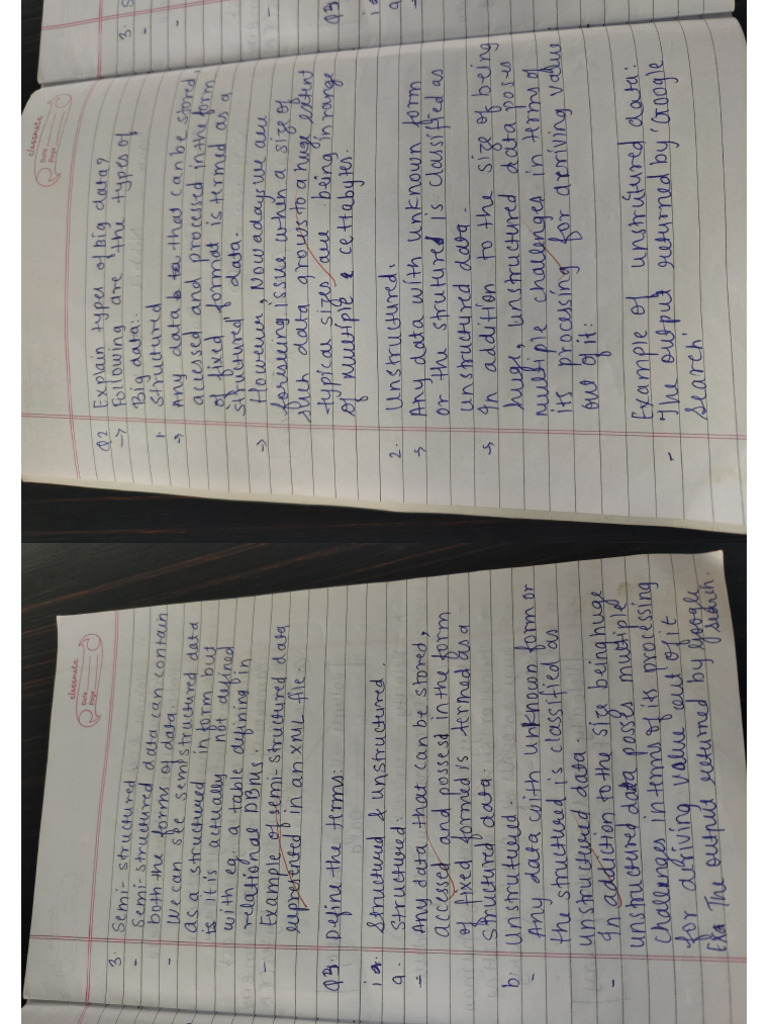 classmate
Date
Page
Q2 Explain types of Big data?
→ Following are the types of
Big data:-
1. Structured
→ Any data that can be stored,
accessed and processed in the form
of fixed format is termed as a
'structured' data.
→ However, Nowadays we are
forisuing issue when a size of
such data grows to a huge extent
typical sizes are being in range
of multiple zettabytes.
2. Unstructured.
→ Any data with unknown form
or the strutured is classified as
unstructured data.
→ In addition to the size of being
huge, unstructured data poses
multiple challenges in terms of
its processing for arriving value
out of it.
Example of unstrutured data:
- The output returned by 'Google
Search'
classmate
Date
Page
3. Semi-structured.
- Semi-structured data can contain
both the forms of data.
- We can see semistructured data
as a structured in form but
is it is actually not defined
with eg. a table defining in
relational DBMS.
- Example of semi-structured data
represented in an XML file.
Q3. Define the terms:
Structured & unstructured.
a. Structured:
- Any data that can be stored,
accessed and possed in the form
of fixed formed is termed as a
structured data.
b. Unstructured.
- Any data with unknown form or
the structured is classified as
unstructured data.
- In addiction to the size being huge
unstructured data posses multiple
challenges in terms of its processing
for deriving value out of it
Exa The output returned by Google
search.
3. S
-
Q3
a.